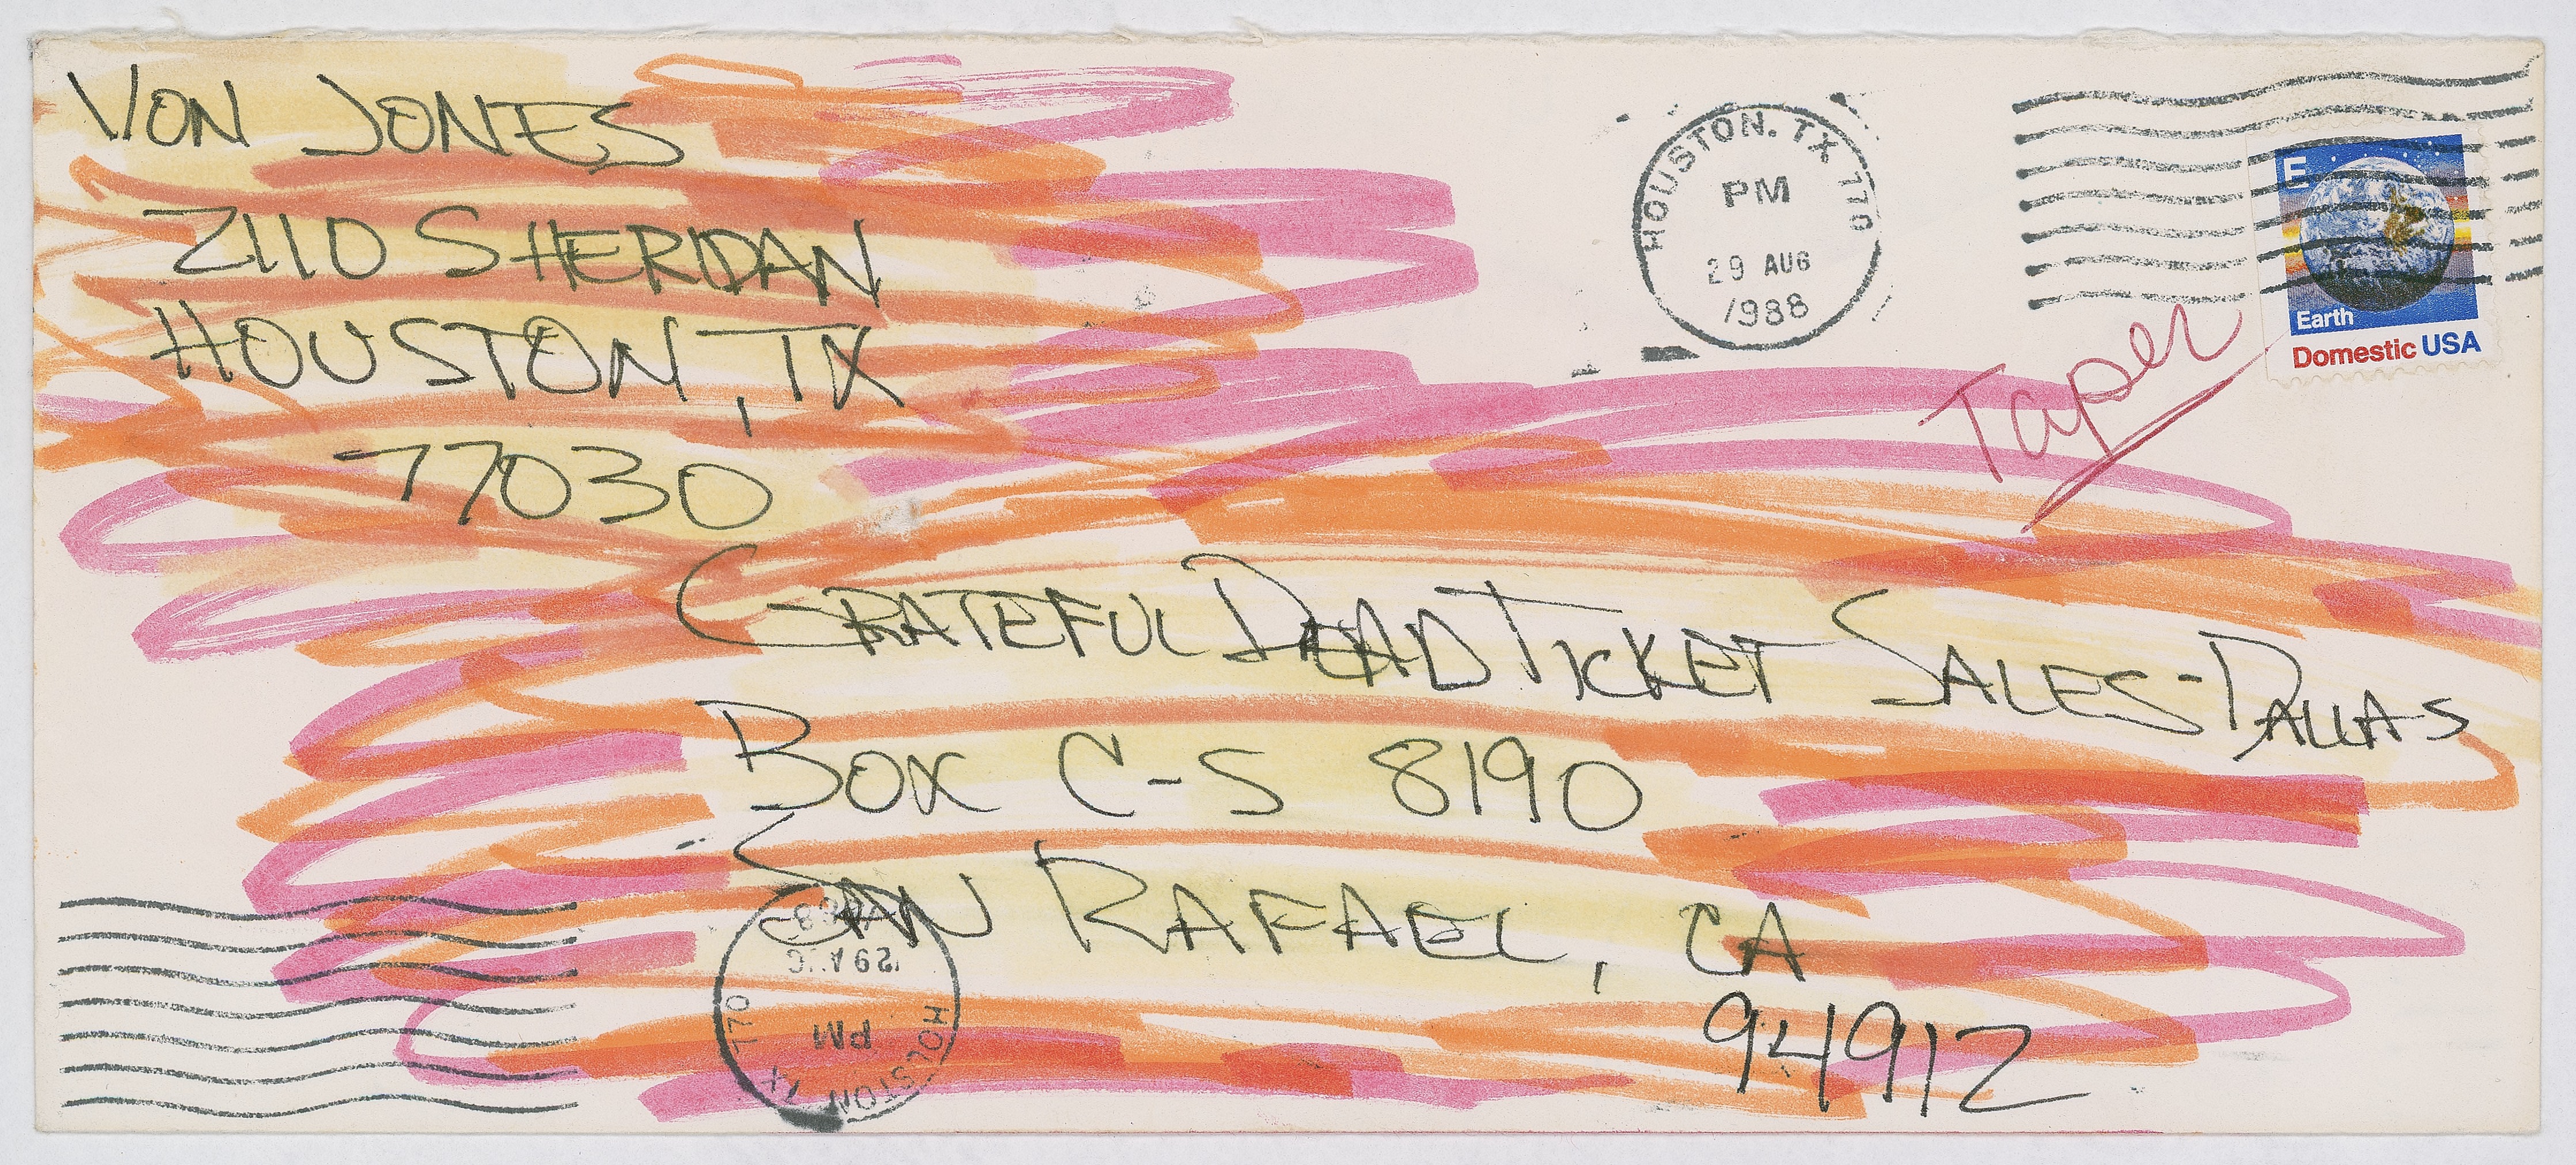 VON JONES
2110 SHERIDAN
HOUSTON, TX
77030
HOUSTON, TX 770
PM
29 AUG
1988
E
Earth
Domestic USA
Taper
GRATEFUL DEAD TICKET SALES-DALLAS
BOX C-S 8190
SAN RAFAEL, CA
94912
HOUSTON TX 770
PM
29 AUG
1988